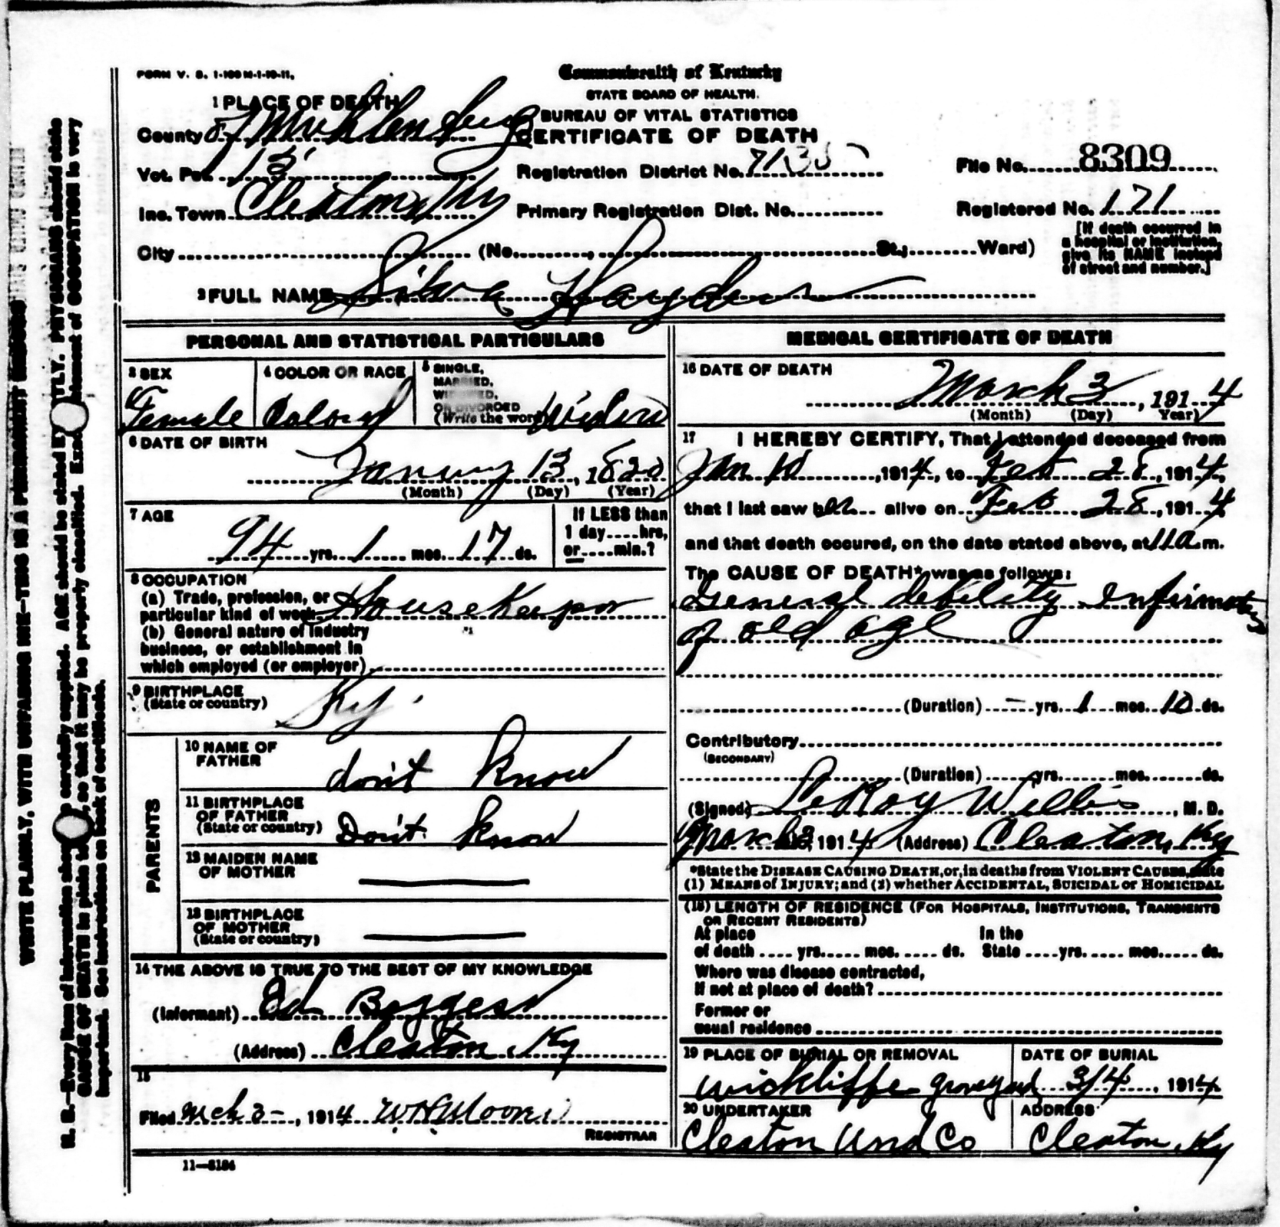 FORM V. S. 1-100 M-1-10-11.
Commonwealth of Kentucky
STATE BOARD OF HEALTH.
BUREAU OF VITAL STATISTICS
CERTIFICATE OF DEATH
1 PLACE OF DEATH
County of Muhlenberg
Vot. Pct. 13
Registration District No.
File No. 8309
Inc. Town Cleaton Ky
Primary Registration Dist. No.
Registered No. 171
City (No. , St.; Ward)
[If death occurred in
a hospital or institution,
give its NAME instead
of street and number.]
2 FULL NAME Silva Hayden
PERSONAL AND STATISTICAL PARTICULARS
3 SEX
Female
4 COLOR OR RACE
Colored
5 SINGLE,
MARRIED,
WIDOWED,
OR DIVORCED
(Write the word) Widow
6 DATE OF BIRTH
January 13, 1820
(Month) (Day) (Year)
7 AGE
94 yrs. 1 mos. 17 ds.
If LESS than
1 day hrs,
or min.?
8 OCCUPATION
(a) Trade, profession, or
particular kind of work Housekeeper
(b) General nature of industry
business, or establishment in
which employed (or employer)
9 BIRTHPLACE
(State or country) Ky.
PARENTS
10 NAME OF
FATHER don't know
11 BIRTHPLACE
OF FATHER
(State or country) Don't know
12 MAIDEN NAME
OF MOTHER
13 BIRTHPLACE
OF MOTHER
(State or country)
14 THE ABOVE IS TRUE TO THE BEST OF MY KNOWLEDGE
(Informant) Ed Boggess
(Address) Cleaton, Ky
15
Filed Mch 3-, 1914 W H Moore
REGISTRAR
11—5184
MEDICAL CERTIFICATE OF DEATH
16 DATE OF DEATH
March 3, 1914
(Month) (Day) Year)
17 I HEREBY CERTIFY, That I attended deceased from
Jan 18, 1914, to Feb 28, 1914,
that I last saw her alive on Feb 28, 1914
and that death occured, on the date stated above, at 11 a m.
The CAUSE OF DEATH* was as follows:
General debility Infirmatys
of old age
(Duration) – yrs. 1 mos. 10 ds.
Contributory
(SECONDARY)
(Duration) yrs. mos. ds.
(Signed) LeRoy Willis, M. D.
March 3, 1914 (Address) Cleaton, Ky
*State the DISEASE CAUSING DEATH, or, in deaths from VIOLENT CAUSES, state
(1) MEANS of INJURY; and (2) whether ACCIDENTAL, SUICIDAL or HOMICIDAL
(18) LENGTH OF RESIDENCE (FOR HOSPITALS, INSTITUTIONS, TRANSIENTS
OR RECENT RESIDENTS)
At place
of death yrs. mos. ds.
In the
State yrs. mos. ds.
Where was disease contracted,
If not at place of death?
Former or
usual residence
19 PLACE OF BURIAL OR REMOVAL
Wickliffe graveyard
DATE OF BURIAL
3/4, 1914
20 UNDERTAKER
Cleaton Und Co
ADDRESS
Cleaton, Ky
WRITE PLAINLY, WITH UNFADING INK—THIS IS A PERMANENT RECORD
N. B.—Every item of information should be carefully supplied. AGE should be stated EXACTLY. PHYSICIANS should state
CAUSE OF DEATH in plain terms, so that it may be properly classified. Exact statement of OCCUPATION is very
important. See instructions on back of certificate.